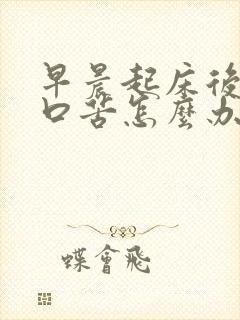 早晨起床後
口苦怎麼办
蝶會飛